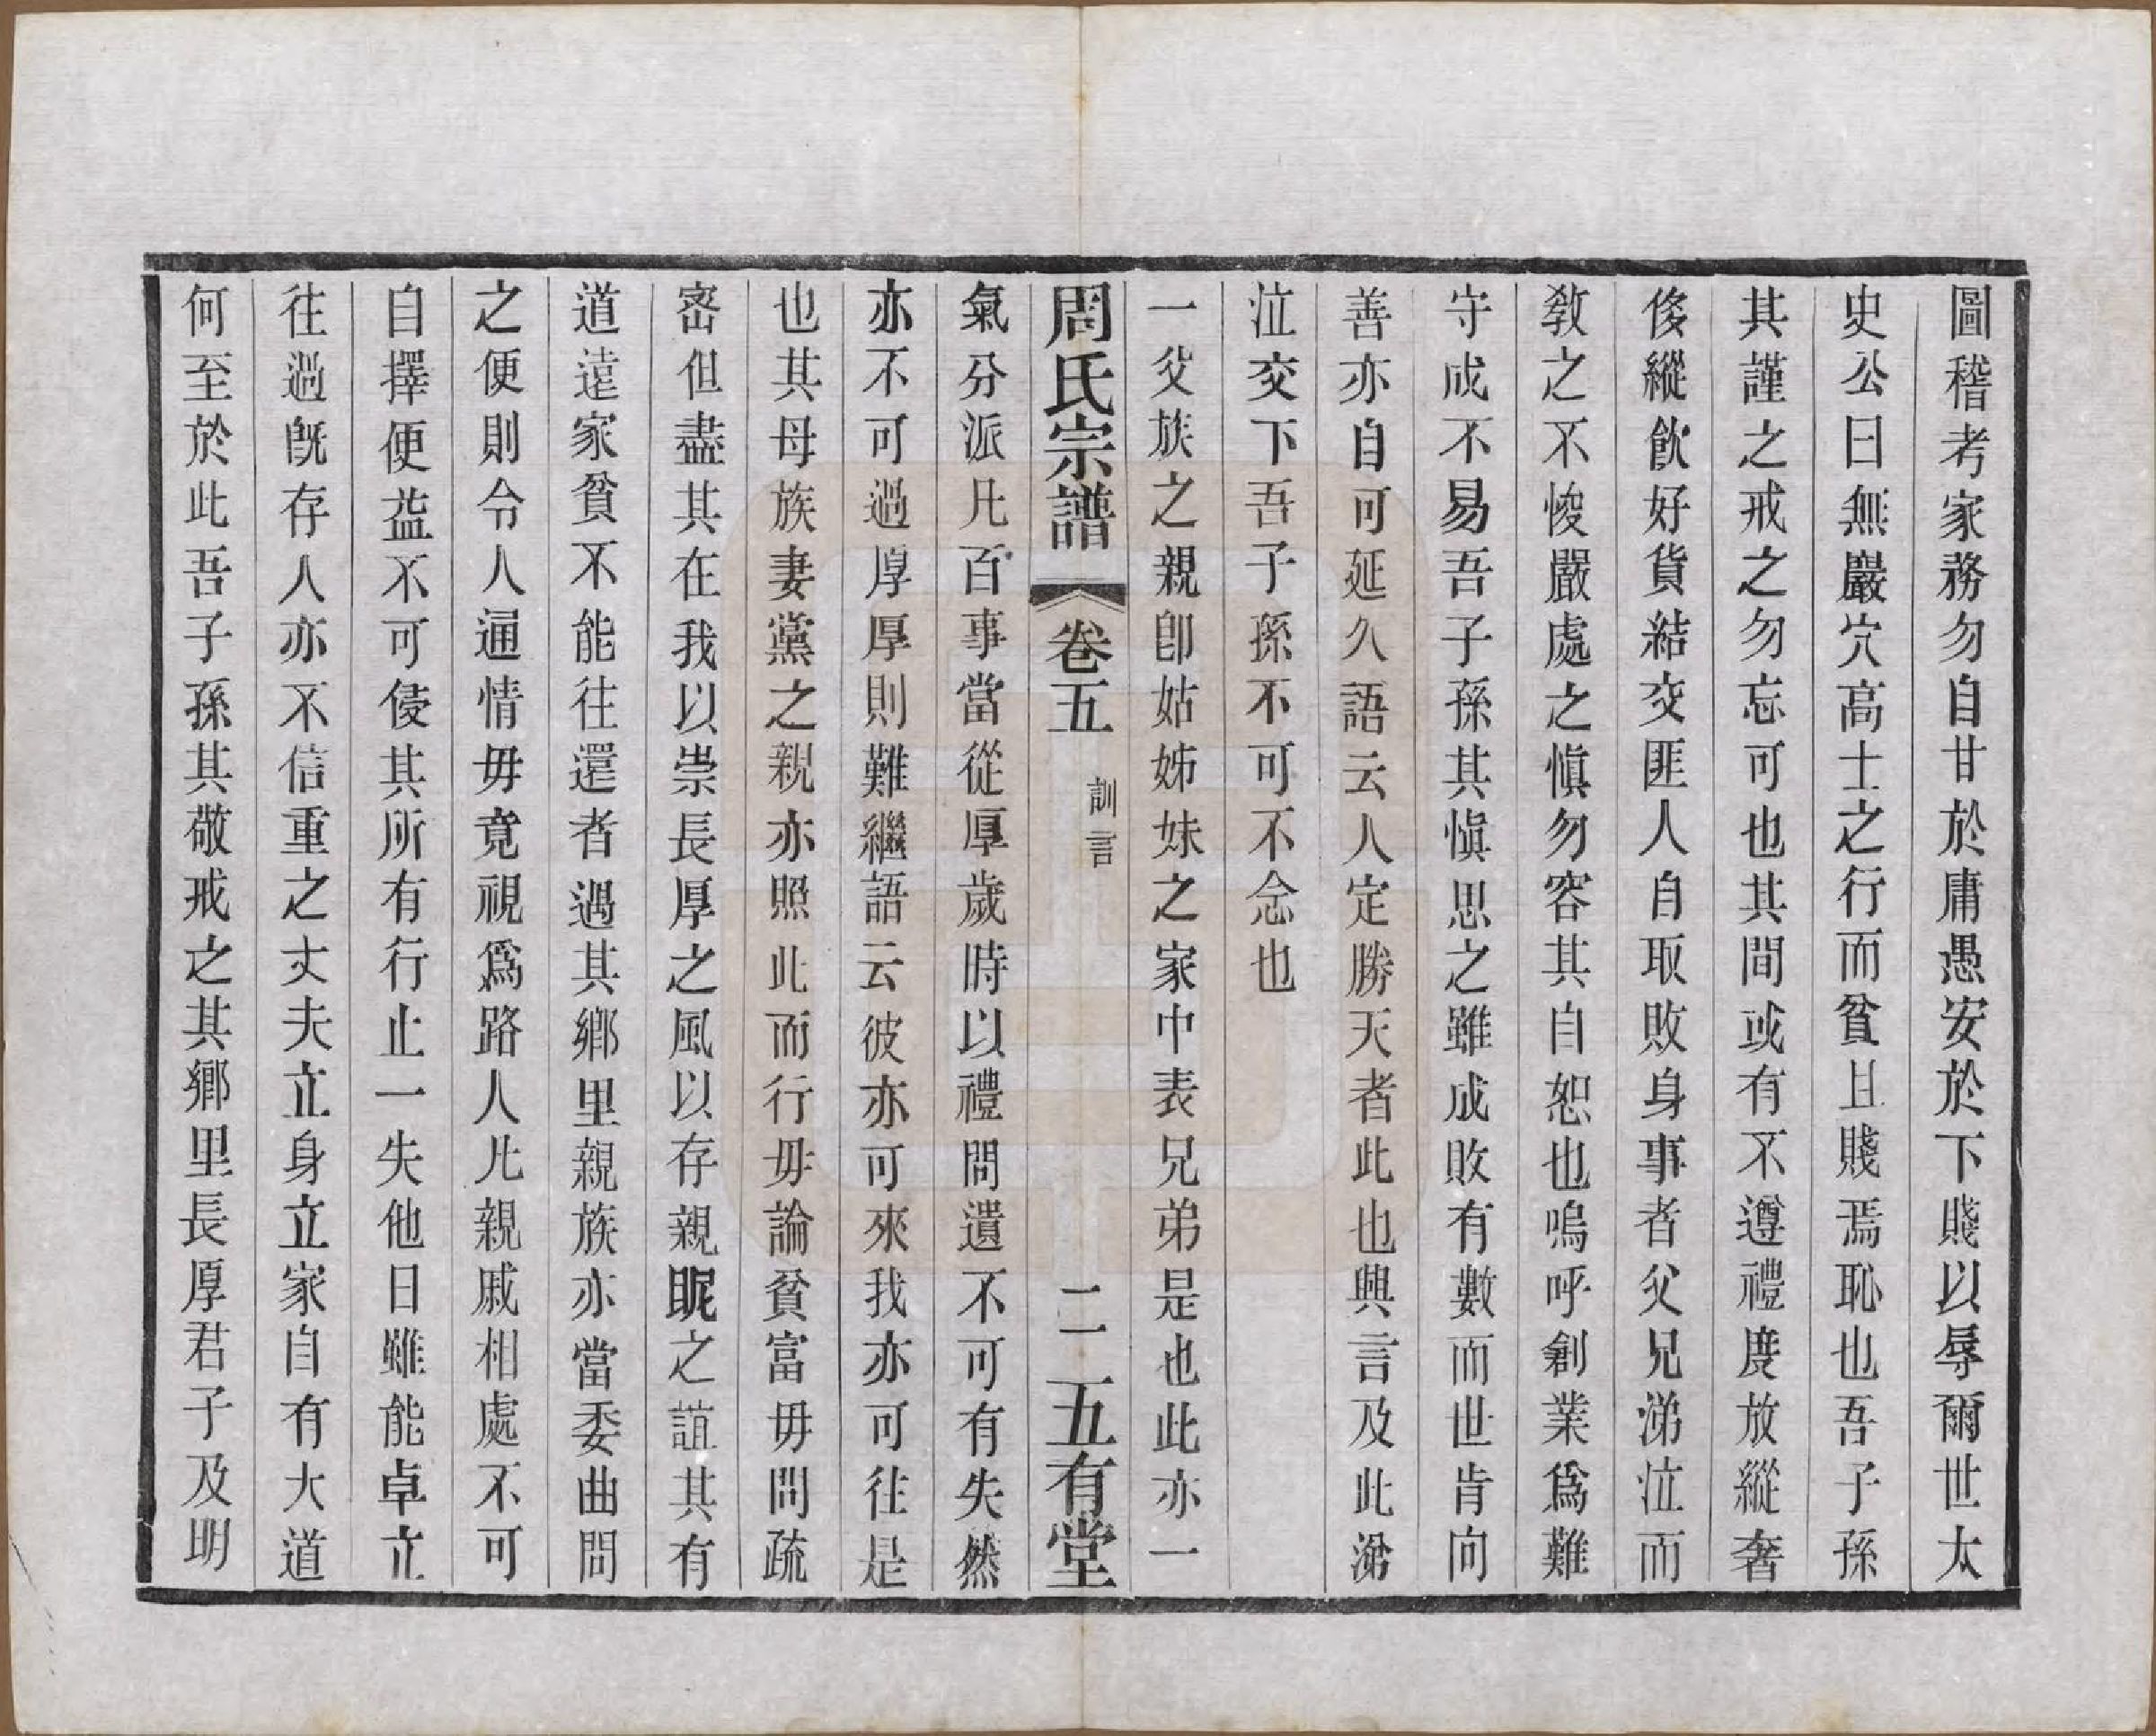 圖稽考家務勿自甘於庸愚安於下賤以辱爾世太
史公曰無巖穴高士之行而貧且賤焉恥也吾子孫
其謹之戒之勿忘可也其間或有不遵禮度放縱奢
侈縱飲好貨結交匪人自取敗身事者父兄涕泣而
教之不悛嚴處之慎勿容其自恕也嗚呼創業為難
守成不易吾子孫其慎思之雖成敗有數而世肯向
善亦自可延久語云人定勝天者此也興言及此涕
泣交下吾子孫不可不念也
一父族之親卽姑姊妹之家中表兄弟是也此亦一
周氏宗譜 卷五 訓言 二 五有堂
氣分派凡百事當從厚歲時以禮問遺不可有失然
亦不可過厚厚則難繼語云彼亦可來我亦可往是
也其母族妻黨之親亦照此而行毋論貧富毋問疏
密但盡其在我以崇長厚之風以存親眤之誼其有
道遠家貧不能往還者遇其鄉里親族亦當委曲問
之便則令人通情毋竟視爲路人凡親戚相處不可
自擇便益不可侵其所有行止一失他日雖能卓立
往過旣存人亦不信重之丈夫立身立家自有大道
何至於此吾子孫其敬戒之其鄉里長厚君子及明